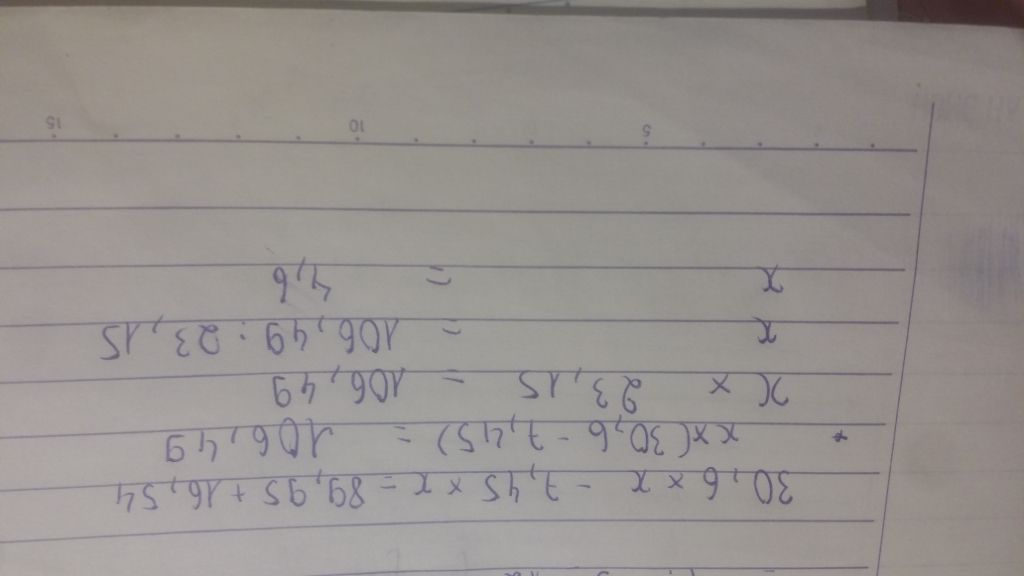 30,6 × x - 7,45 × x = 89,95 + 16,54
* x×(30,6 - 7,45) = 106,49
x × 23,15 = 106,49
x = 106,49 : 23,15
x = 4,6
5 10 15